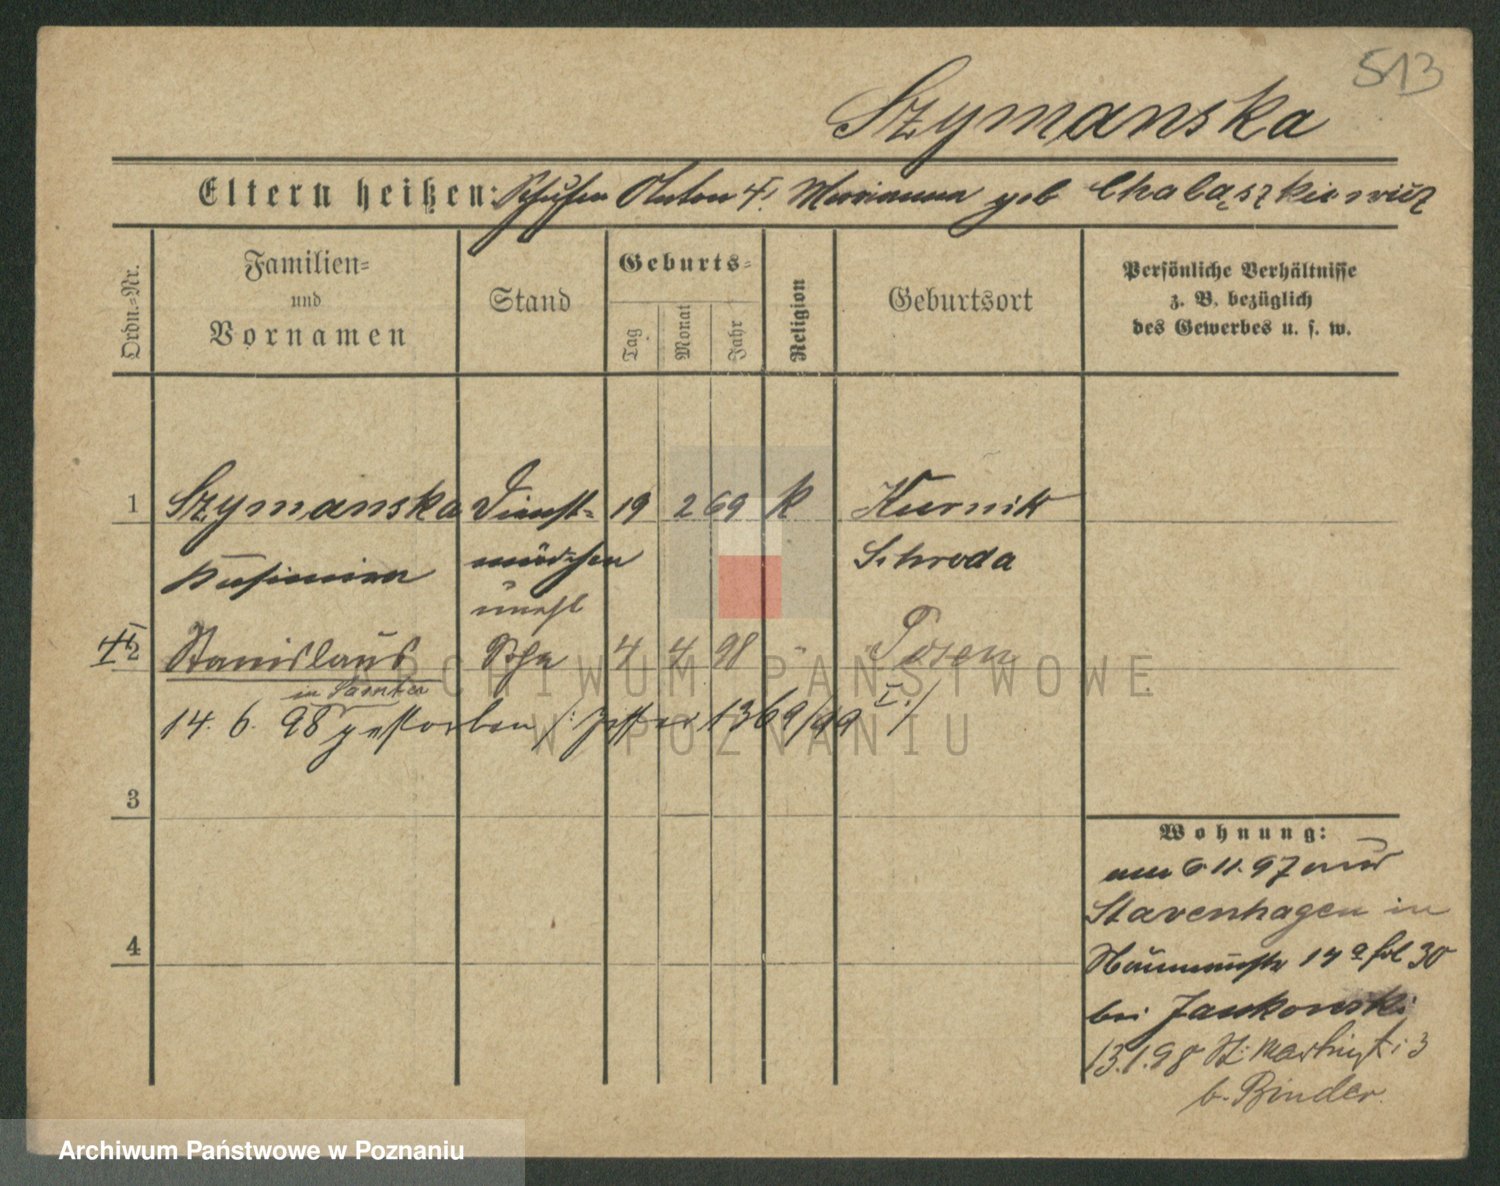 513
Szymanska
Eltern heißen: Anton Marianna geb
Ordn.-Nr.
Familien-
und
Vornamen
Stand
Geburts-
Tag
Monat
Jahr
Religion
Geburtsort
Persönliche Verhältnisse
z. B. bezüglich
des Gewerbes u. s. w.
1 Szymanska Dienst- 19 2 69 k Kurnik
mädchen Schroda
unehl
2 Stanislaus 4 4 98 Posen
in
14. 6. 98 gestorben 1369/99 I
3
4
Wohnung:
6.11.97
Stavenhagen in
14a 30
bei Jankowski
13.1.98 St. Martinstr 3
b. Binder.
ARCHIWUM PAŃSTWOWE
W POZNANIU
Archiwum Państwowe w Poznaniu